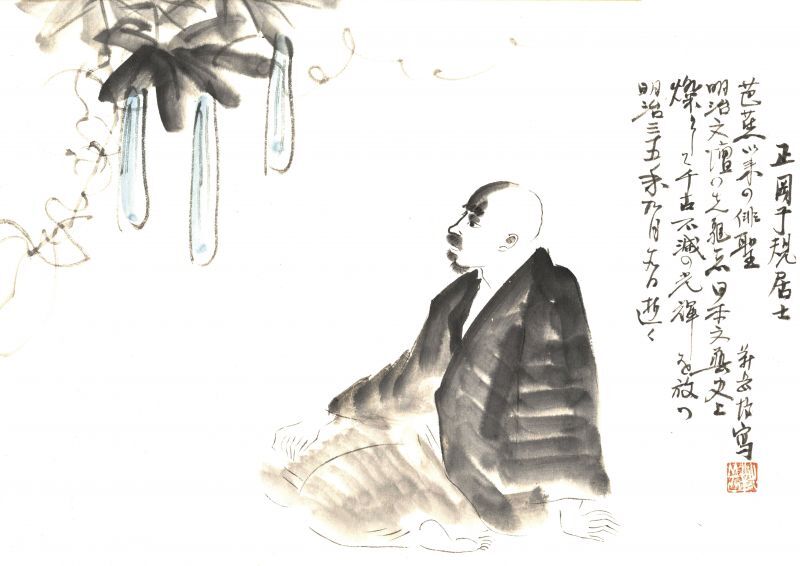 正岡子規居士
芭蕉以来の俳聖
明治文壇の先駆者日本文藝史上
燦として千古不滅の光輝を放つ
明治三五年九月 日逝く
写